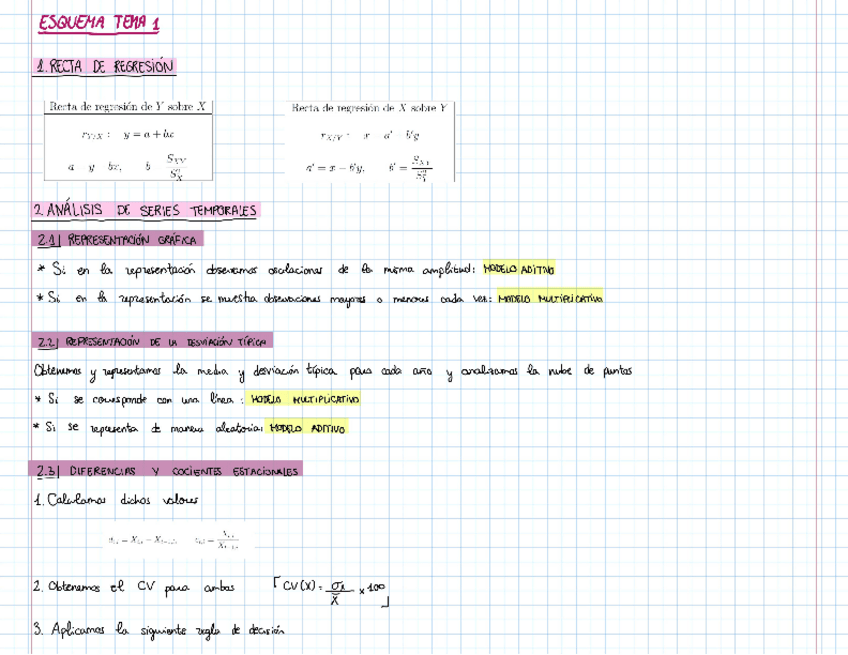 ESQUEMA TEMA 1
1. RECTA DE REGRESIÓN
Recta de regresión de Y sobre X
r_{Y/X} : y = a + bx
a y bx, b S_{XY} / S²_X
Recta de regresión de X sobre Y
r_{X/Y} : x a' b'y
a' = x − b'y, b' = S_{XY} / S²_Y
2. ANÁLISIS DE SERIES TEMPORALES
2.1| REPRESENTACIÓN GRÁFICA
* Si en la representación observamos oscilaciones de la misma amplitud: MODELO ADITIVO
* Si en la representación se muestra observaciones mayores o menores cada vez: MODELO MULTIPLICATIVO
2.2| REPRESENTACIÓN DE LA DESVIACIÓN TÍPICA
Obtenemos y representamos la media y desviación típica para cada año y analizamos la nube de puntos
* Si se corresponde con una línea: MODELO MULTIPLICATIVO
* Si se representa de manera aleatoria: MODELO ADITIVO
2.3| DIFERENCIAS Y COCIENTES ESTACIONALES
1. Calculamos dichos valores
2. Obtenemos el CV para ambas [CV(X) = σx / X̄ x 100]
3. Aplicamos la siguiente regla de decisión